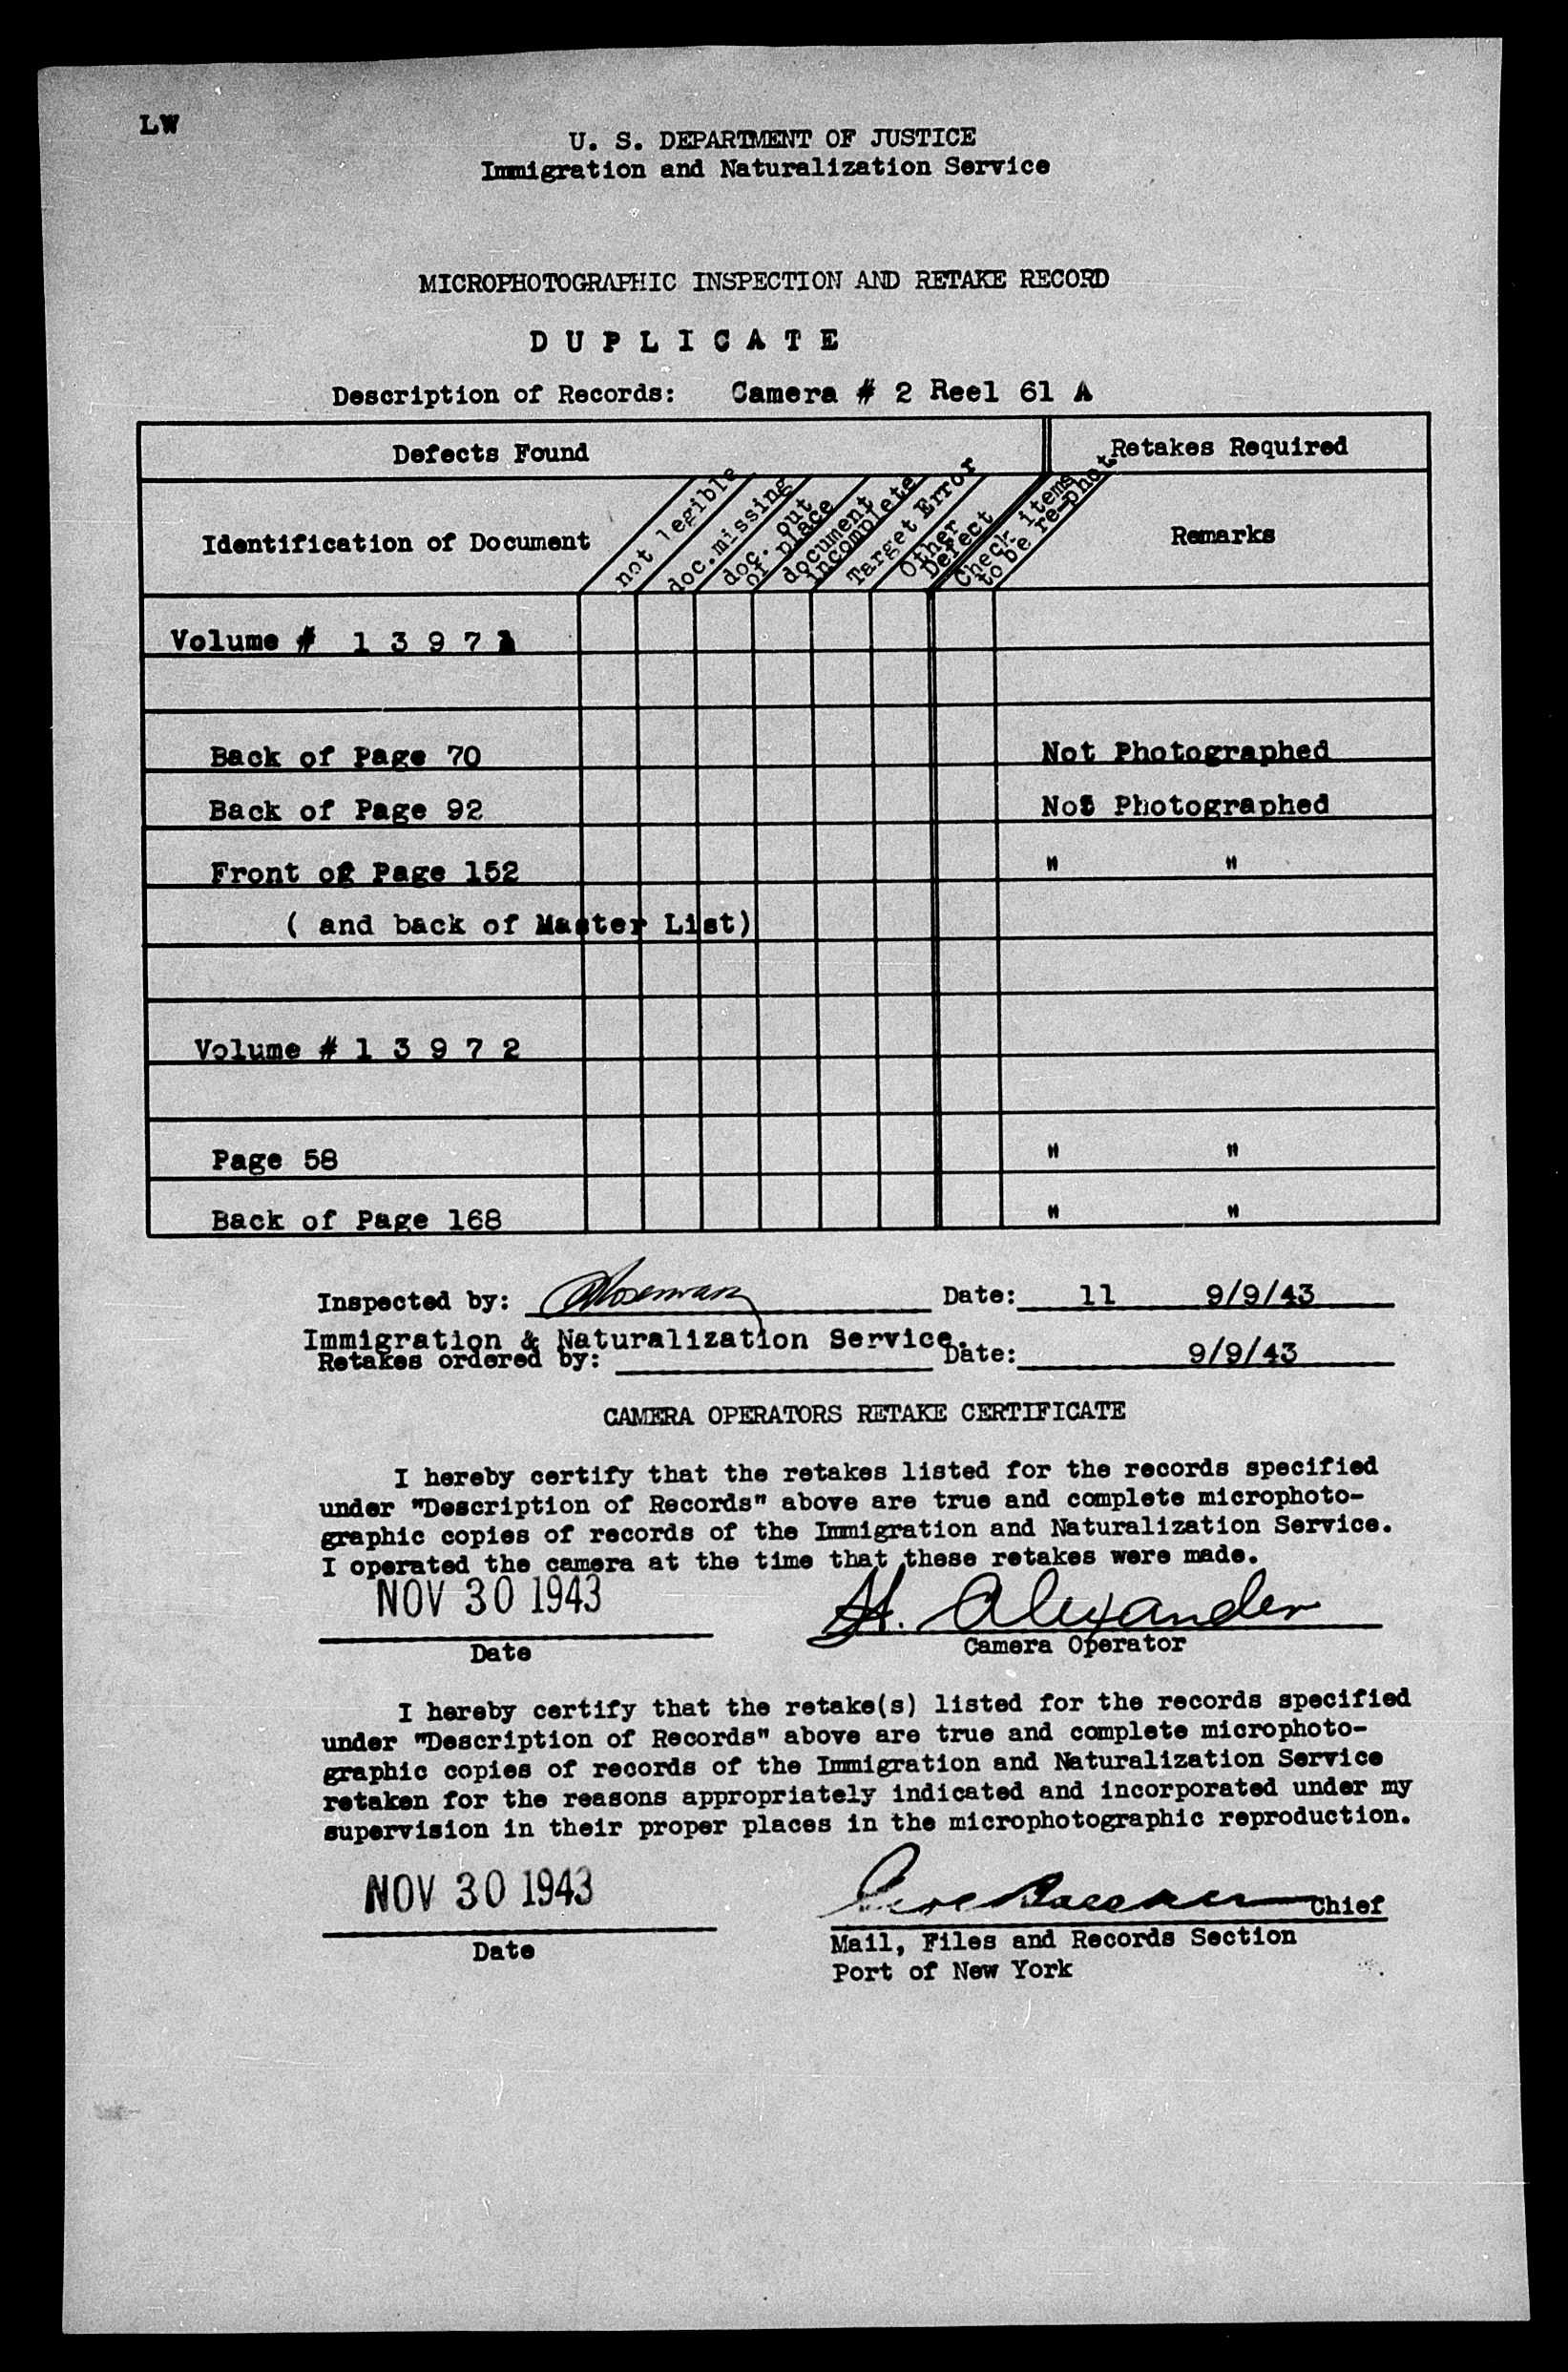 LW
U. S. DEPARTMENT OF JUSTICE
Immigration and Naturalization Service
MICROPHOTOGRAPHIC INSPECTION AND RETAKE RECORD
D U P L I C A T E
Description of Records: Camera # 2 Reel 61 A
Defects Found
Retakes Required
Identification of Document
not legible
doc. missing
doc. out
of place
document
incomplete
Target Error
Other
Defect
Check items
to be re-phot
Remarks
Volume # 1 3 9 7 1
Back of Page 70 Not Photographed
Back of Page 92 Not Photographed
Front of Page 152 " "
( and back of Master List)
Volume # 1 3 9 7 2
Page 58 " "
Back of Page 168 " "
Inspected by: Date: 11 9/9/43
Immigration & Naturalization Service.
Retakes ordered by: Date: 9/9/43
CAMERA OPERATORS RETAKE CERTIFICATE
I hereby certify that the retakes listed for the records specified
under "Description of Records" above are true and complete microphoto-
graphic copies of records of the Immigration and Naturalization Service.
I operated the camera at the time that these retakes were made.
NOV 30 1943 H. Alexander
Date Camera Operator
I hereby certify that the retake(s) listed for the records specified
under "Description of Records" above are true and complete microphoto-
graphic copies of records of the Immigration and Naturalization Service
retaken for the reasons appropriately indicated and incorporated under my
supervision in their proper places in the microphotographic reproduction.
NOV 30 1943 Chief
Date Mail, Files and Records Section
Port of New York